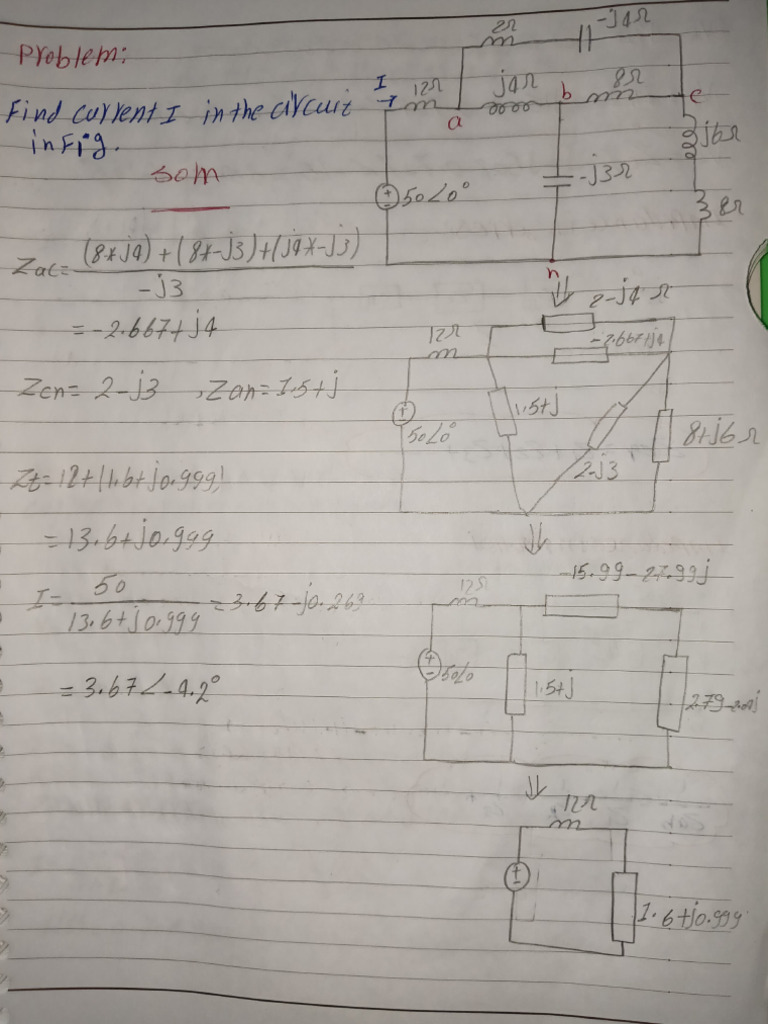 Problem:
Find current I in the circuit
in Fig.
soln
Zac= (8*j4)+(8*-j3)+(j4*-j3)
-j3
= -2.667+j4
Zcn= 2-j3 , Zan=1.5+j
Zt=12+(1.6+j0.999)
= 13.6+j0.999
I= 50
13.6+j0.999
= 3.67-j0.269
= 3.67∠-4.2°
2Ω
-j4Ω
I
→
12Ω
j4Ω
b
8Ω
c
a
j6Ω
50∠0°
-j3Ω
8Ω
n
⇓
2-j4 Ω
12Ω
-2.667+j4
1.5+j
50∠0°
8+j6 Ω
2-j3
⇓
-15.99-27.99j
12Ω
50∠0
1.5+j
⇓
12Ω
1.6+j0.999